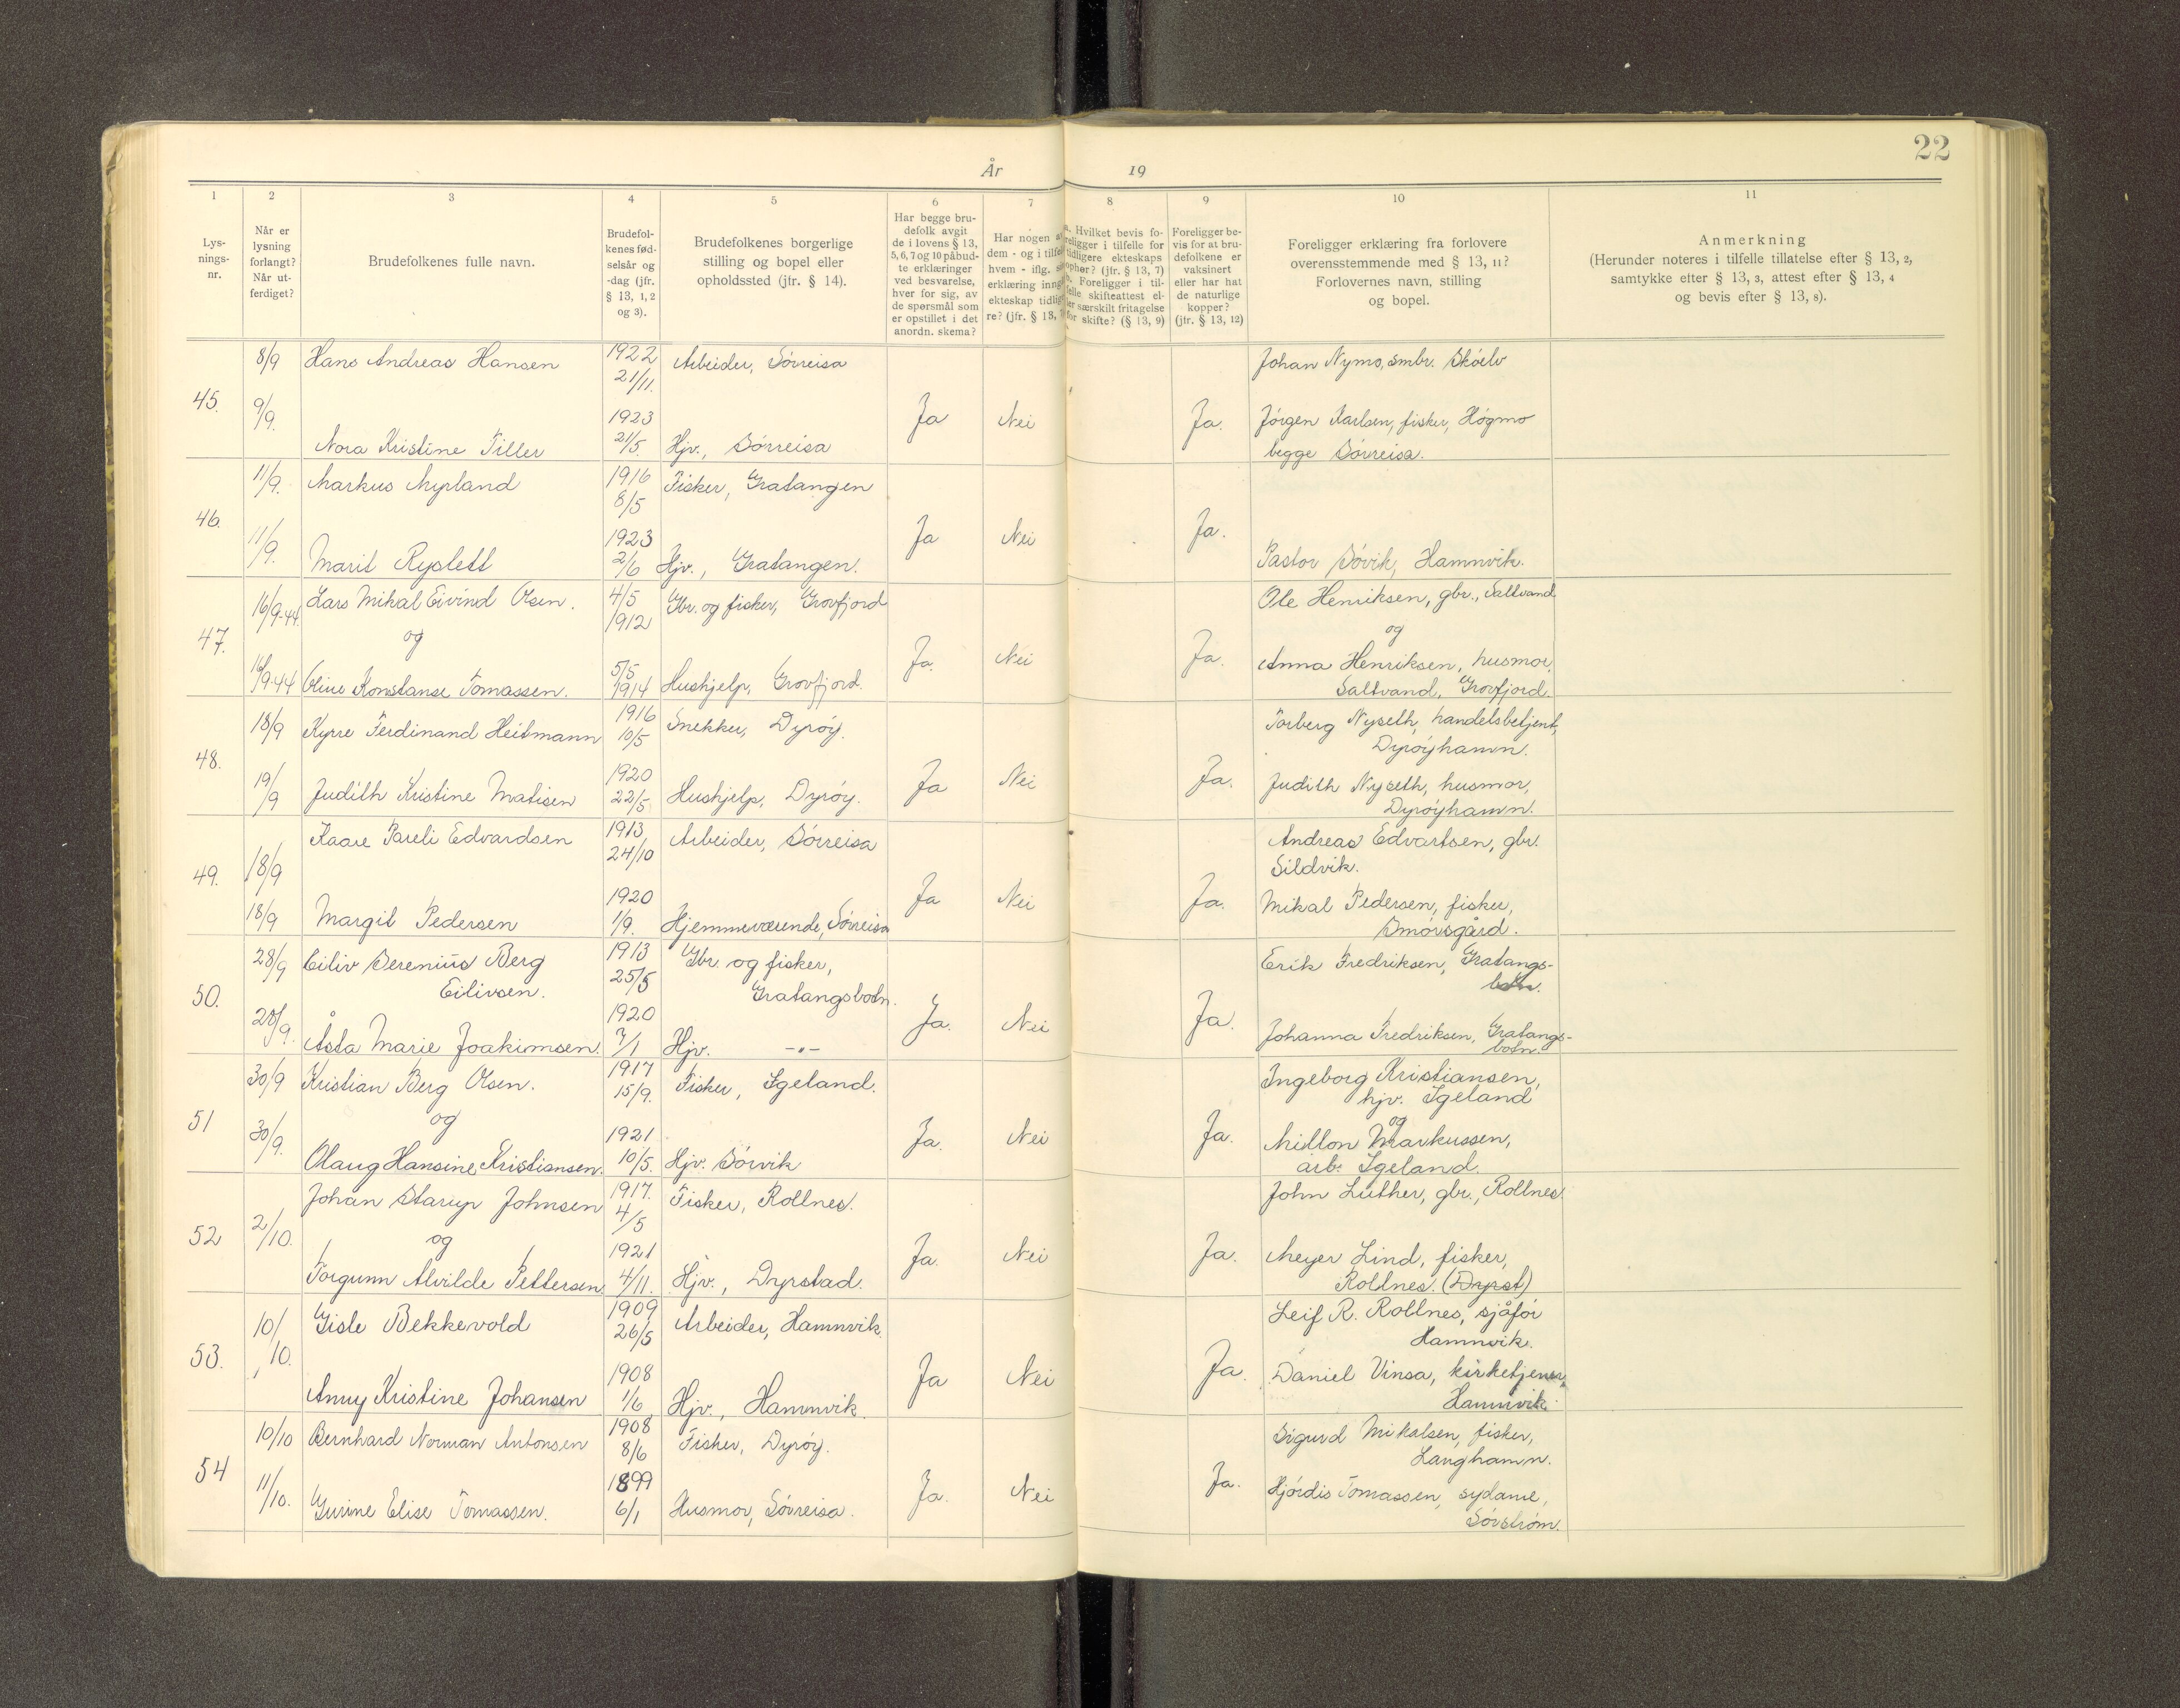 22
År 19
1 2 3 4 5 6 7 8 9 10 11
Lys-
nings-
nr.
Når er
lysning
forlangt?
Når ut-
ferdiget?
Brudefolkenes fulle navn.
Brudefol-
kenes fød-
selsår og
-dag (jfr.
§ 13, 1, 2
og 3).
Brudefolkenes borgerlige
stilling og bopel eller
opholdssted (jfr. § 14).
Har begge bru-
defolk avgit
de i lovens § 13,
5, 6, 7 og 10 påbud-
te erklæringer
ved besvarelse,
hver for sig, av
de spørsmål som
er opstillet i det
anordn. skema?
Har nogen av
dem - og i tilfel
hvem - iflg. s
erklæring inng
ekteskap tidlig
re? (jfr. § 13, 7
a. Hvilket bevis fo-
religger i tilfelle for
tidligere ekteskaps
ophør? (jfr. § 13, 7)
b. Foreligger i til-
felle skifteattest el-
ler særskilt fritagelse
for skifte? (§ 13, 9)
Foreligger be-
vis for at bru-
defolkene er
vaksinert
eller har hat
de naturlige
kopper?
(jfr. § 13, 12)
Foreligger erklæring fra forlovere
overensstemmende med § 13, 11?
Forlovernes navn, stilling
og bopel.
Anmerkning
(Herunder noteres i tilfelle tillatelse efter § 13, 2,
samtykke efter § 13, 3, attest efter § 13, 4
og bevis efter § 13, 8).
8/9 Hans Andreas Hansen 1922 Arbeider, Sórreisa Johan Nymo, smbr. Skóelv
21/11.
45. 9/9. 1923 Ja Nei Ja. Jórgen Karlsen, fisker, Hógmo
Nora Kristine Tiller 21/5. Hjv., Sórreisa begge Sórreisa.
11/9. Markus Myrland 1916 Fisker, Gratangen
8/5
46. 11/9. 1923 Ja Nei Ja.
Marit Ryslett 2/6 Hjv., Gratangen. Pastor Sóvik, Hamnvik.
16/9-44. Lars Mikal Eivind Olsen. 4/5 Gbr. og fisker, Grovfjord Ole Henriksen, gbr., Saltvand
1912
47. og Ja. Nei Ja. og
5/5 Anna Henriksen, husmor,
16/9-44 Oline Konstanse Tomassen. 1914 Hushjelp, Grovfjord. Saltvand, Grovfjord.
18/9 Kyrre Ferdinand Heitmann 1916 Snekker, Dyróy. Torberg Nyseth, handelsbetjent,
10/5 Dyróyhamn.
48. 19/9 1920 Ja Nei Ja. Judith Nyseth, husmor,
Judith Kristine Matisen 22/5 Hushjelp, Dyróy. Dyróyhamn.
Kaare Pareli Edvardsen 1913 Arbeider, Sórreisa Andreas Edvartsen, gbr.
24/10 Sildvik.
49. 18/9 1920 Ja Nei Ja. Mikal Pedersen, fisker,
18/9 Margit Pedersen 1/9. Hjemmeværende, Sórreisa Smórsgård.
28/9 Eiliv Berenius Berg 1913 Gbr. og fisker, Erik Fredriksen, Gratangs-
Eilivsen. 25/5 Gratangsbotn. botn.
50. 28/9. 1920 Ja. Nei Ja.
Åsta Marie Joakimsen. 7/1 Hjv. -"- Johanna Fredriksen, Gratangs-
botn.
30/9 Kristian Berg Olsen. 1917 Fisker, Igeland. Ingeborg Kristiansen,
15/9. hjv. Igeland
51 30/9. og 1921 Ja. Nei Ja. og
Milton Markussen,
Olaug Hansine Kristiansen. 10/5. Hjv. Sórvik arb. Igeland.
Johan Starup Johnsen 1917. Fisker, Rollnes. John Luther, gbr., Rollnes.
4/5
52 2/10. og 1921 Ja. Nei Ja. Meyer Lind, fisker,
Torgunn Alvilde Pettersen 4/11. Hjv., Dyrstad. Rollnes. (Dyrst)
10/10. Gisle Bekkevold 1909 Arbeider, Hamnvik. Leif R. Rollnes, sjåfór
26/5 Hamnvik.
53. 1908 Ja Nei Ja. Daniel Vinsa, kirketjener,
Anny Kristine Johansen 1/6 Hjv., Hamnvik. Hamnvik.
10/10 Bernhard Norman Antonsen 1908 Fisker, Dyróy. Sigurd Mikalsen, fisker,
8/6 Langhamn.
54 11/10. 1899 Ja. Nei Ja. Hjórdis Tomassen, sydame,
Gurine Elise Tomassen. 6/1 Husmor, Sórreisa. Sórstróm.